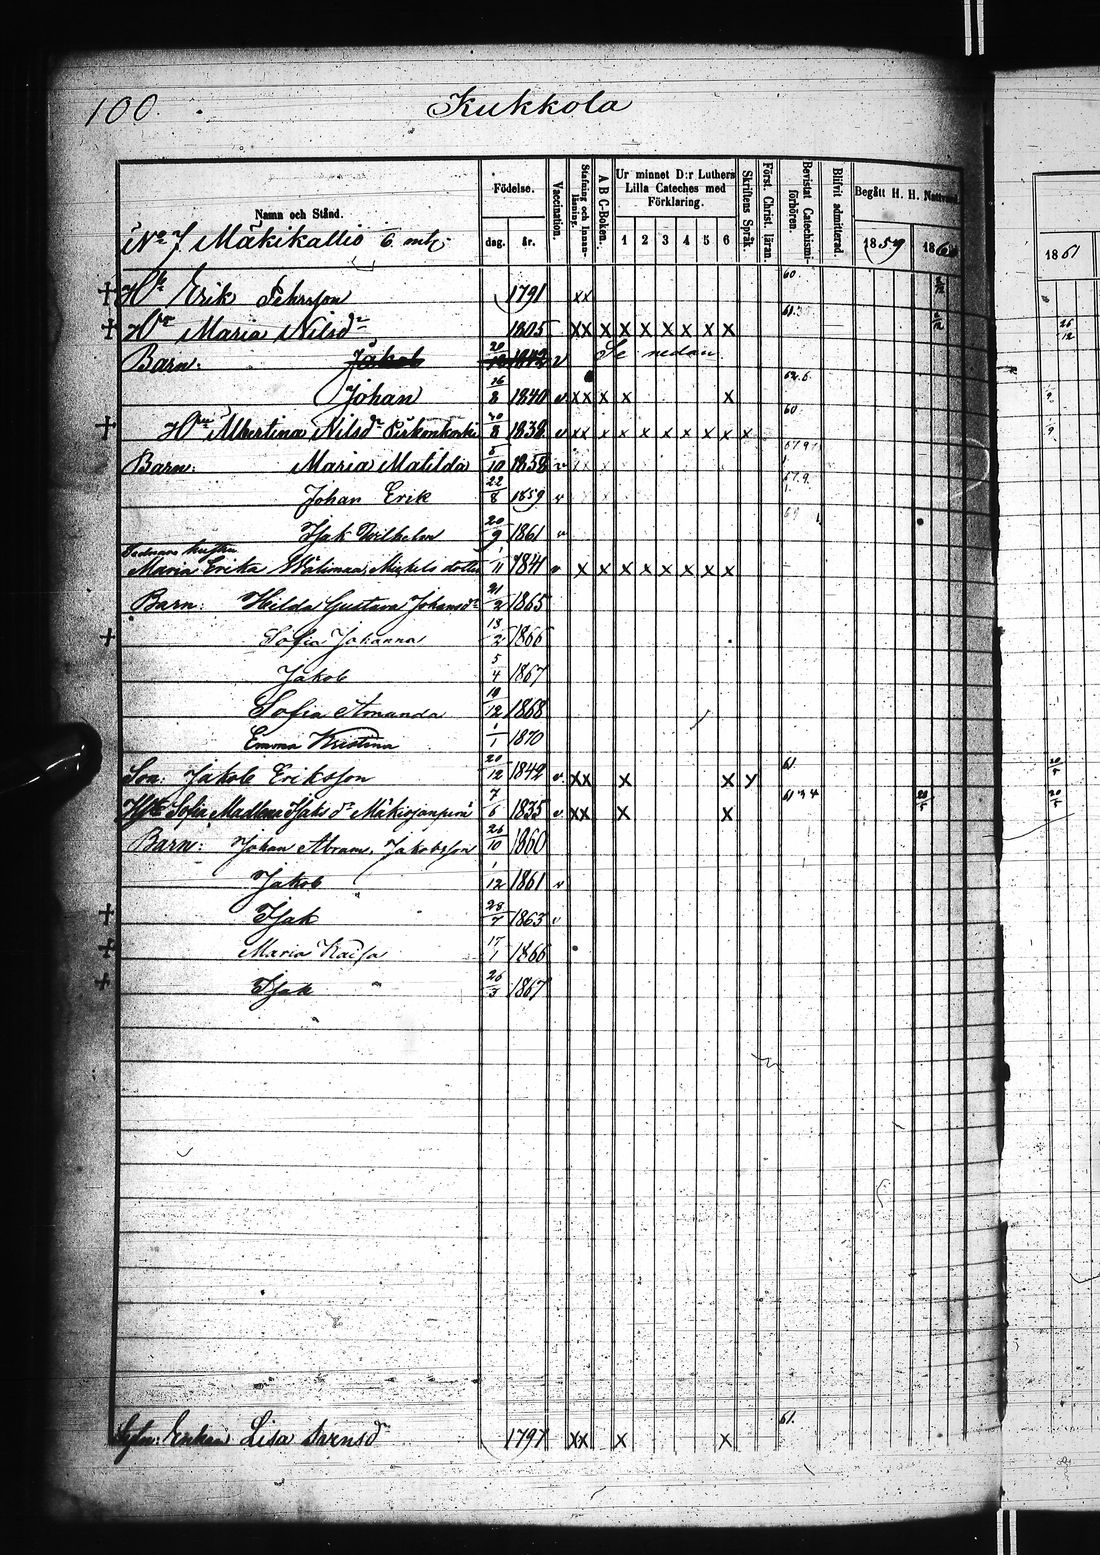 100.
Kukkola
Namn och Stånd.
Födelse.
dag. år.
Vaccination.
Stafning och Innanläsning.
A B C-Boken.
Ur minnet D:r Luthers Lilla Cateches med Förklaring.
1 2 3 4 5 6
Skriftens Språk.
Först. Christ. läran.
Bevistat Catechismiförhören.
Blifvit admitterad.
Begått H. H. Nattvard.
1859 1860
1861
No 7 Mäkikallio 6. mtl.
† Erik Pehrsson 1791 xx 60.
† Maria Nilsdr 1805 xx x x x x x x x 61.
Barn: Jakob 20/12 1842 v Se nedan
Johan 16/8 1840 v xx x x x 62.6.
† Albertina Nilsdr 1838 v xx x x x x x x x x 60
Barn: Maria Matilda 5/10 1858 v
Johan Erik 22/8 1859 v
Isak Wilhelm 20/9 1861 v
Maria Erika Mickels dotter 1/11 1841 v x x x x x x x x
Barn: Hilda Gustava Johansdr 21/2 1865
† Sofia Johanna 13/2 1866
Jakob 5/4 1867
Sofia Amanda 19/12 1868
Emma Kristina 1/1 1870
Son: Jakob Eriksson 20/12 1842 v. xx x x y 61.
Sofia Madlena Isaks dr 7/6 1835 v xx x x 61 3 4
Barn: Johan Abram. Jakobsson 26/10 1860
Jakob 1/12 1861 v
† Isak 28/7 1863 v
† Maria Kaisa 17/1 1866
† Isak 26/3 1867
Enkan Lisa 1797 xx x x 61.